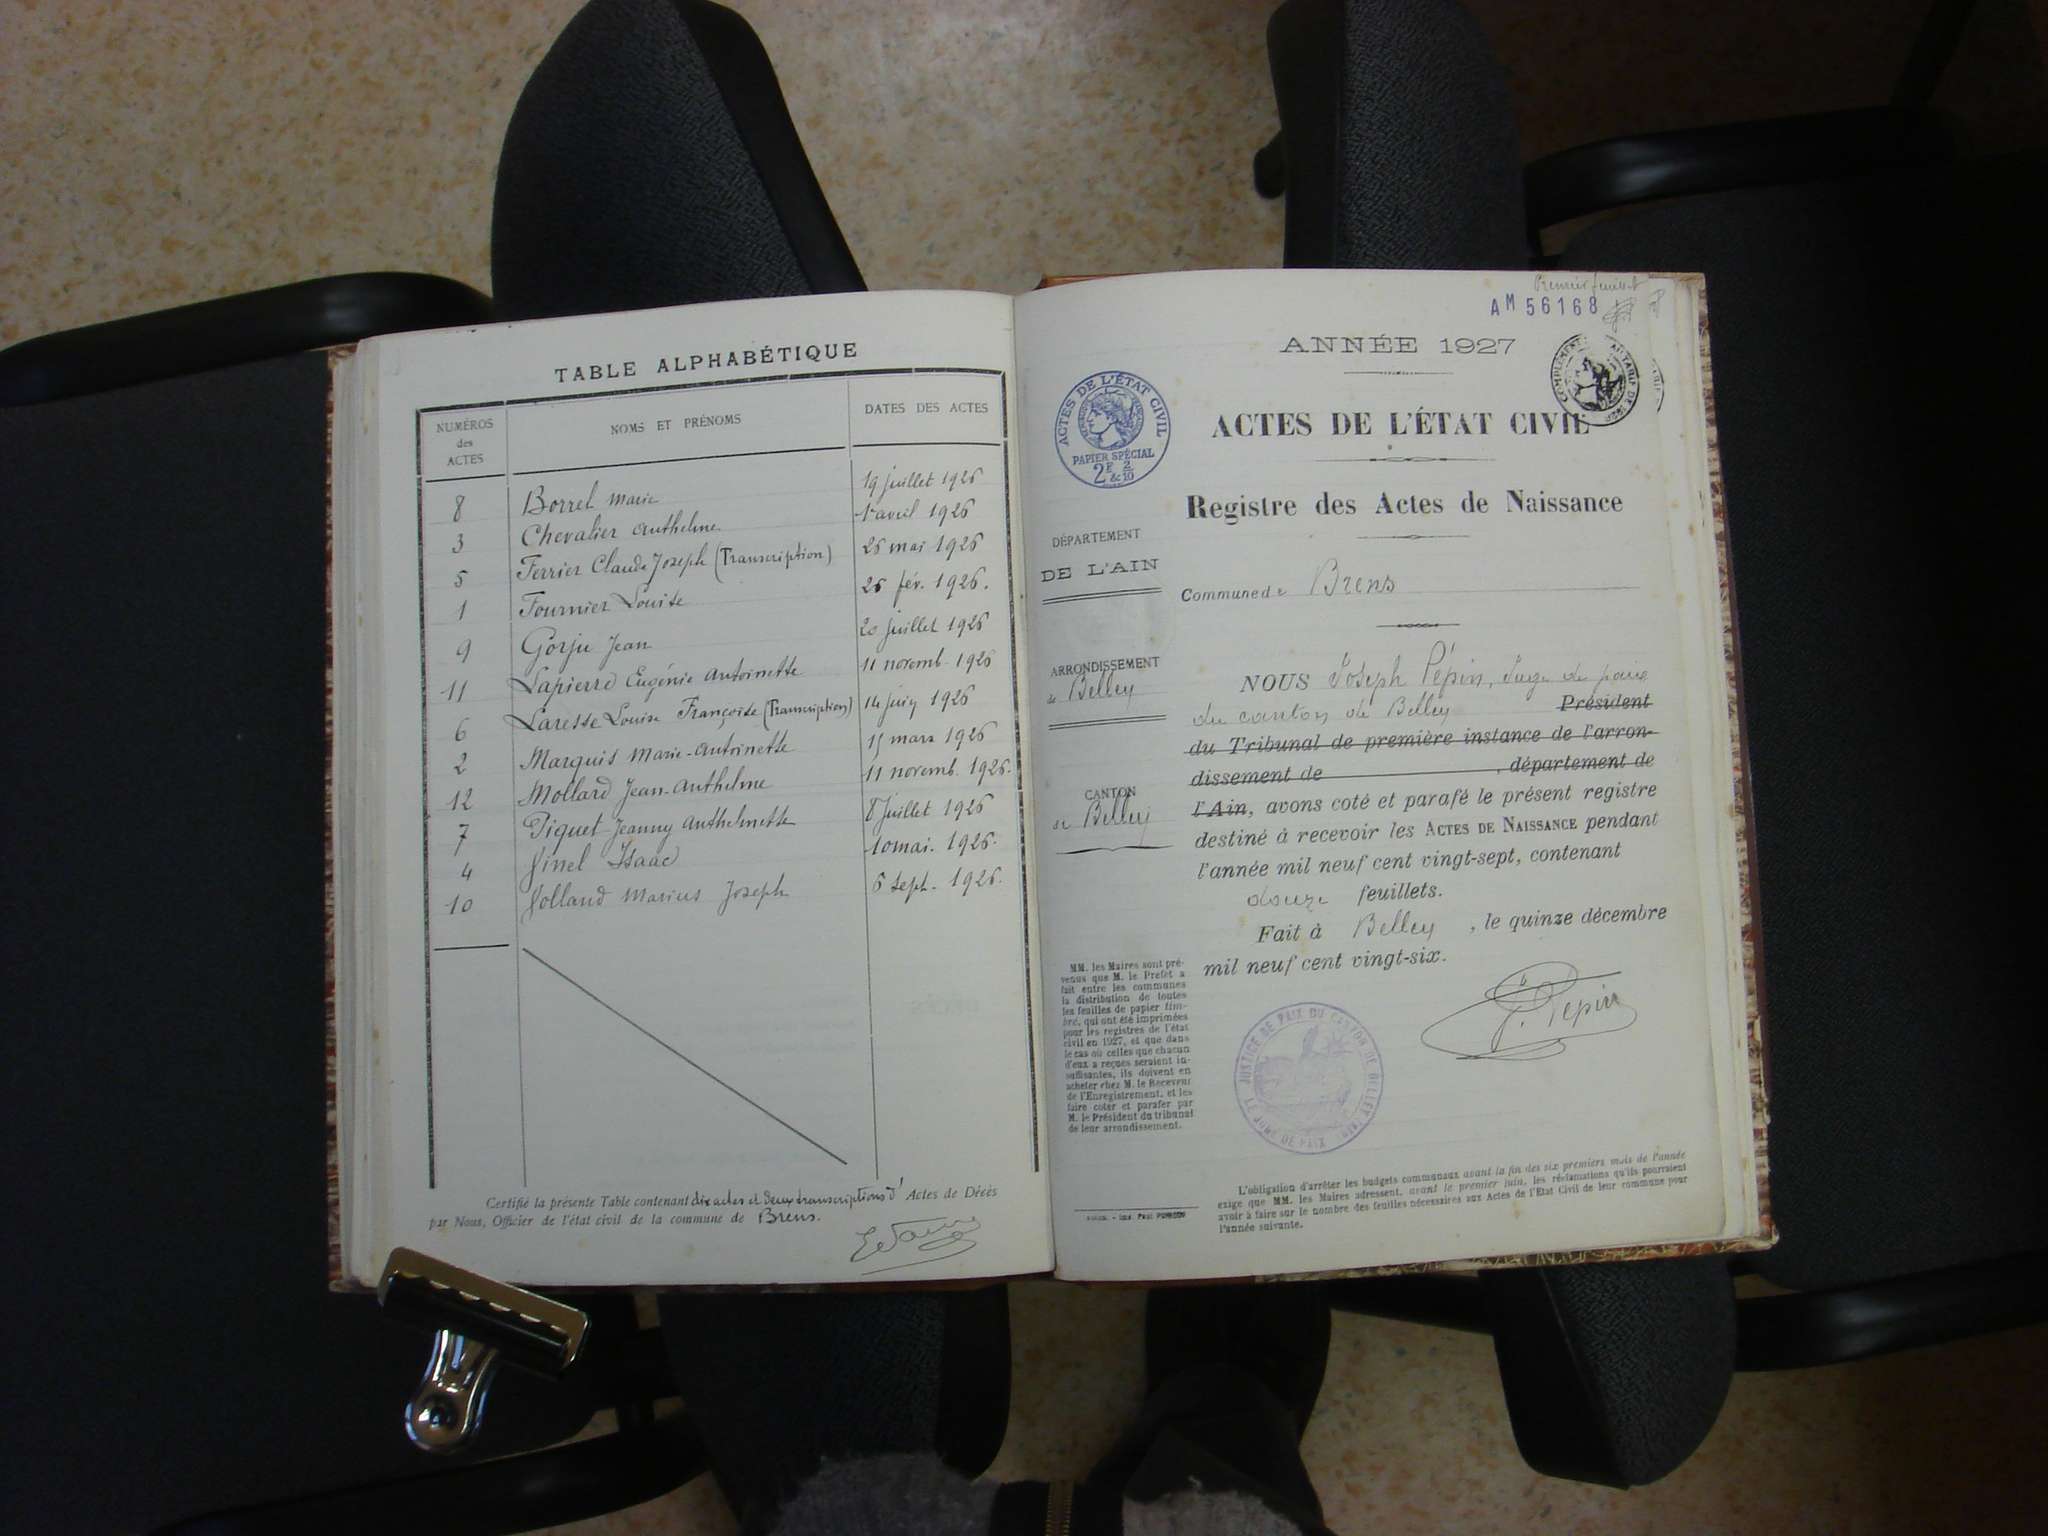 TABLE ALPHABÉTIQUE
NUMÉROS des ACTES
NOMS ET PRÉNOMS
DATES DES ACTES
8 Borrel Marie 19 juillet 1926
3 Chevalier Anthelme 1er avril 1926
5 Ferrier Claude Joseph (Transcription) 26 mai 1926
1 Fournier Louise 26 fév. 1926.
9 Gorju Jean 20 juillet 1926
11 Lapierre Eugénie Antoinette 11 novemb. 1926
6 Laresse Louise Françoise (Transcription) 14 juin 1926
2 Marquis Marie-Antoinette 15 mars 1926
12 Mollard Jean-Anthelme 11 novemb. 1926.
7 Piquet Jeanny Anthelmette 8 juillet 1926
4 Isaac 10 mai. 1926.
10 Marius Joseph 6 sept. 1926.
Certifié la présente Table contenant dix actes et deux transcriptions d' Actes de Décès
par Nous, Officier de l'état civil de la commune de Brens.
Premier feuillet
AM 56168
ANNÉE 1927
ACTES DE L'ÉTAT CIVIL
PAPIER SPÉCIAL
2F & 2/10
ACTES DE L'ÉTAT CIVIL
Registre des Actes de Naissance
DÉPARTEMENT
DE L'AIN
Commune de Brens
ARRONDISSEMENT
de Belley
CANTON
de Belley
NOUS Joseph Pépin, Juge de paix
du canton de Belley Président
du Tribunal de première instance de l'arron-
dissement de , département de
l'Ain, avons coté et parafé le présent registre
destiné à recevoir les ACTES DE NAISSANCE pendant
l'année mil neuf cent vingt-sept, contenant
douze feuillets.
Fait à Belley, le quinze décembre
mil neuf cent vingt-six.
J. Pépin
JUSTICE DE PAIX DU CANTON DE BELLEY
MM. les Maires sont pré-
venus que M. le Préfet a
fait entre les communes
la distribution de toutes
les feuilles de papier tim-
bré, qui ont été imprimées
pour les registres de l'état
civil en 1927, et que dans
le cas où celles que chacun
d'eux a reçues seraient in-
suffisantes, ils doivent en
acheter chez M. le Receveur
de l'Enregistrement, et les
faire coter et parafer par
M. le Président du tribunal
de leur arrondissement.
L'obligation d'arrêter les budgets communaux avant la fin des six premiers mois de l'année
exige que MM. les Maires adressent, avant le premier juin, les réclamations qu'ils pourraient
avoir à faire sur le nombre des feuilles nécessaires aux Actes de l'État Civil de leur commune pour
l'année suivante.